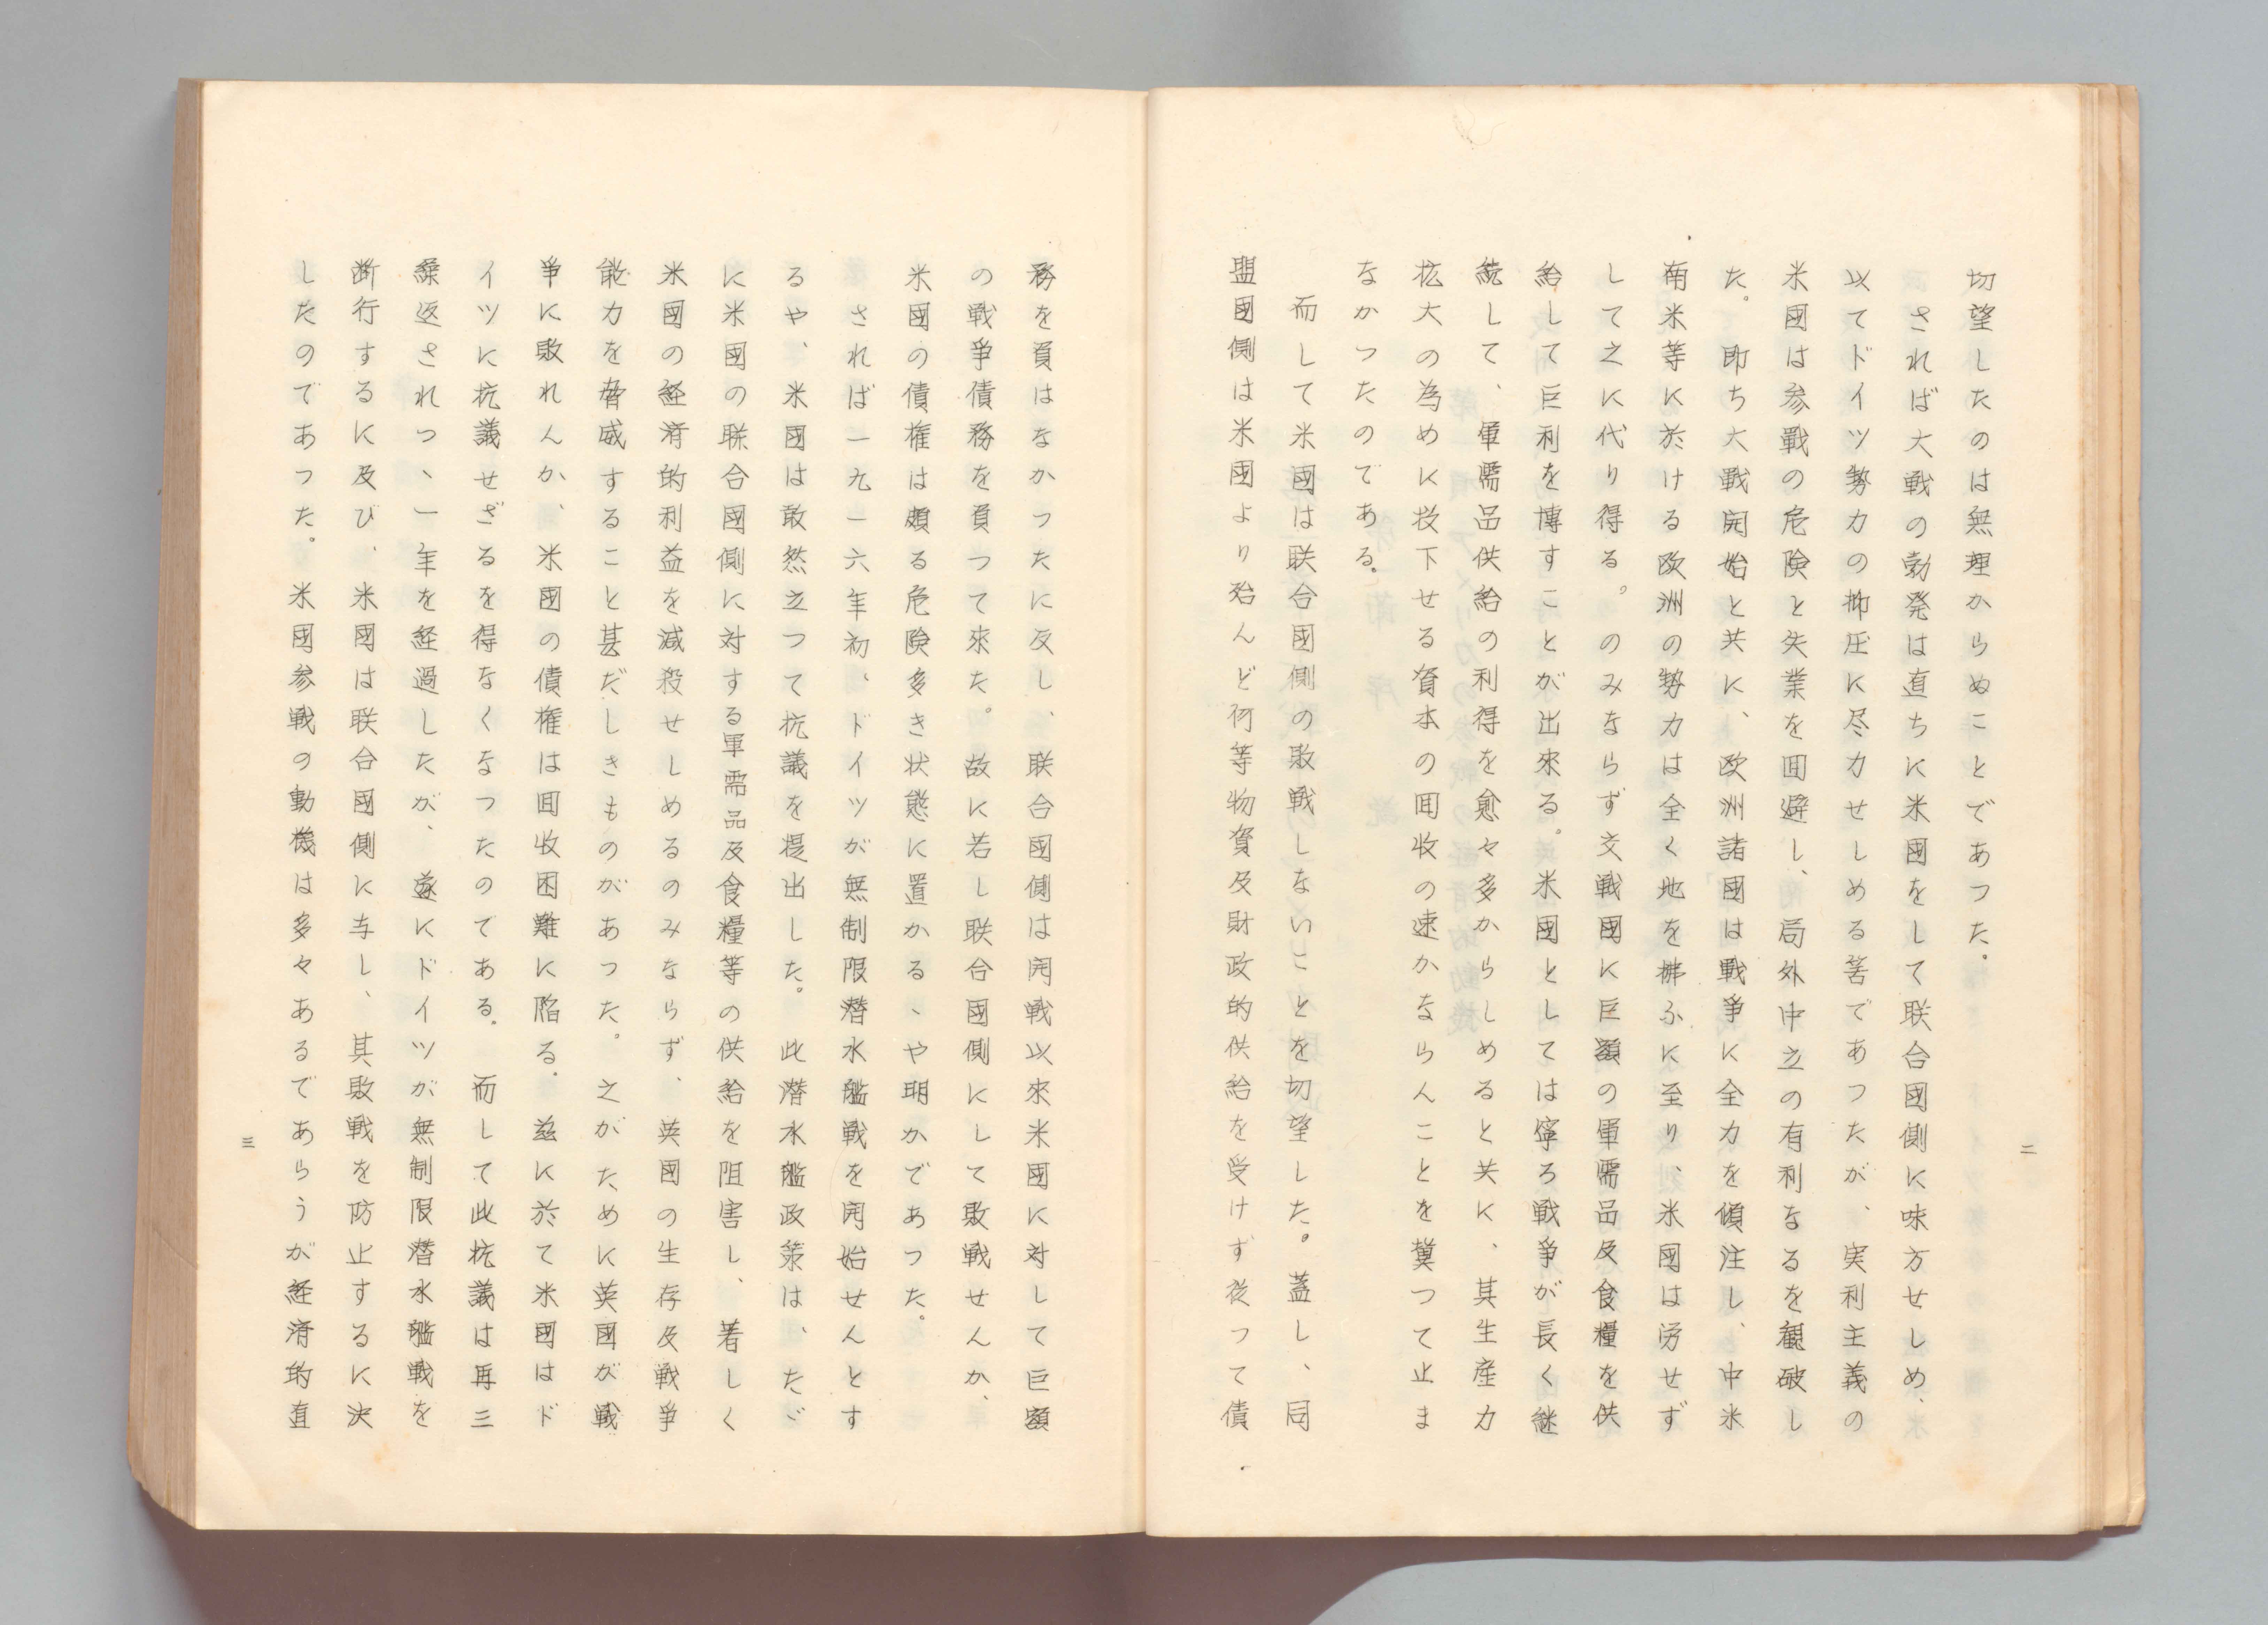 切望したのは無理からぬことであつた。
されば大戦の勃発は直ちに米國をして联合國側に味方せしめ、
以てドイツ勢力の抑圧に尽力せしめる筈であつたが、実利主義の
米國は参戰の危険と失業を囬避し、局外中立の有利なるを観破し
た。即ち大戦開始と共に、欧洲諸國は戰爭に全力を傾注し、中米
南米等に於ける欧洲の勢力は全く地を拂ふに至り、米國は労せず
して之に代り得る。のみならず交戦國に巨額の軍需品及食糧を供
給して巨利を博すことが出來る。米國としては寧ろ戦爭が長く継
続して、軍需品供給の利得を愈々多からしめると共に、其生産力
拡大の為めに投下せる資本の囬收の速かならんことを冀つて止ま
なかつたのである。
而して米國は联合國側の敗戦しないことを切望した。蓋し、同
盟國側は米國より殆んど何等物資及財政的供給を受けず従つて債
二
務を負はなかつたに反し、联合國側は開戦以來米國に対して巨額
の戦爭債務を負つて來た。故に若し联合國側にして敗戦せんか、
米國の債権は頗る危険多き状態に置かるゝや明かであつた。
されば一九一六年初、ドイツが無制限潜水艦戦を開始せんとす
るや、米國は敢然立つて抗議を提出した。此潜水艦政策は、たゞ
に米國の联合國側に対する軍需品及食糧等の供給を阻害し、著しく
米國の経済的利益を減殺せしめるのみならず、英國の生存及戦爭
能力を脅威すること甚だしきものがあつた。之がために英國が戦
爭に敗れんか、米國の債権は囬收困難に陥る。茲に於て米國はド
イツに抗議せざるを得なくなつたのである。而して此抗議は再三
繰返されつゝ一年を経過したが、遂にドイツが無制限潜水艦戦を
断行するに及び、米國は联合國側に与し、其敗戦を防止するに決
したのであつた。米國参戦の動機は多々あるであらうが経済的直
三